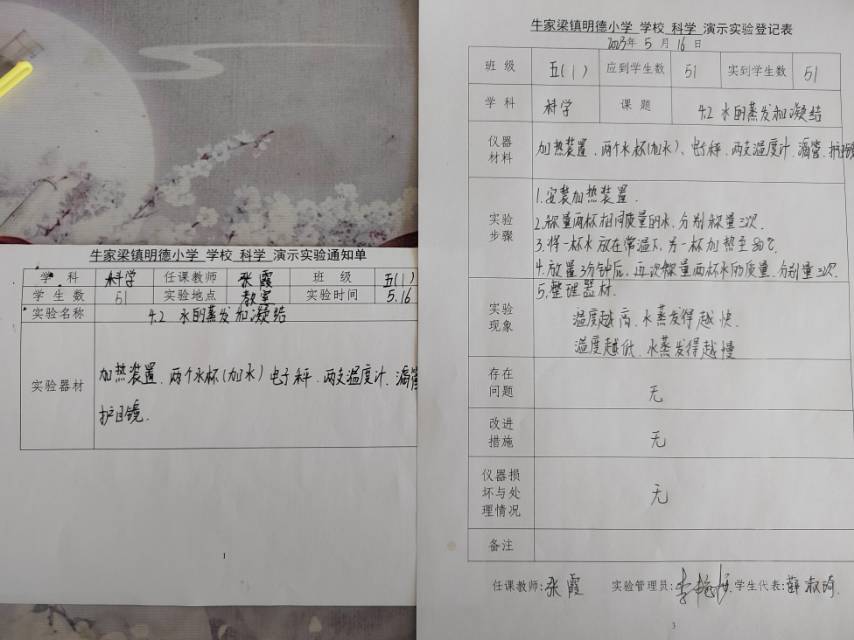 牛家梁镇明德小学 学校 科学 演示实验通知单
学 科 科学 任课教师 张霞 班 级 五(1)
学 生 数 51 实验地点 教室 实验时间 5.16
实验名称 4.2 水的蒸发和凝结
实验器材 加热装置、两个水杯(加水) 电子秤、两支温度计、滴管
护目镜.
1
牛家梁镇明德小学 学校 科学 演示实验登记表
2023年 5 月 16 日
班 级 五(1) 应到学生数 51 实到学生数 51
学 科 科学 课 题 4.2 水的蒸发和凝结
仪器材料 加热装置、两个水杯(加水)、电子秤、两支温度计、滴管、护目镜
实验步骤 1.安装加热装置.
2.称量两杯相同质量的水,分别称量三次.
3.将一杯水放在常温下,另一杯加热至80℃.
4.放置3分钟后,再次称量两杯水的质量,分别量3次.
5.整理器材.
实验现象 温度越高,水蒸发得越快.
温度越低,水蒸发得越慢
存在问题 无
改进措施 无
仪器损坏与处理情况 无
备注
任课教师:张霞 实验管理员: 学生代表:薛淑琦.
3